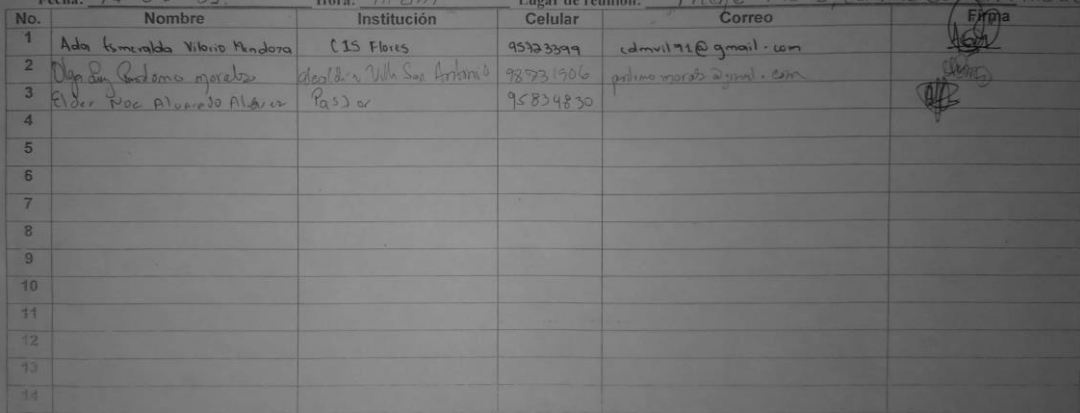 Fecha: Hora: Lugar de reunión:
No. Nombre Institución Celular Correo Firma
1 Ada Esmeralda Vilorio Mendoza CIS Flores 95723399 edmvil91@gmail.com
2 Olga Perdomo morales Villa San Antonio 98731906
3 Elder Noe Alvarado Pastor 95834830
4
5
6
7
8
9
10
11
12
13
14